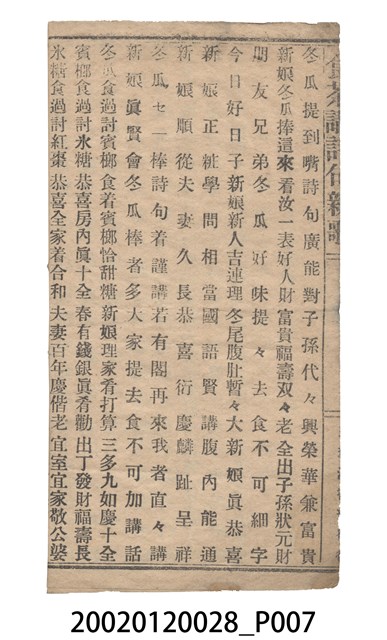 冬瓜提到嘴詩句廣能對子孫代々興榮華兼富貴
新娘冬瓜捧這來看汝一表好人財富貴福壽双々老全出子孫狀元財
朋友兄弟冬瓜好味提々去食不可細字
今日好日子新娘新人吉連理冬尾腹肚暫々大新娘眞恭喜
新娘正粧學問相當國語賢講腹內能通
新娘順從夫妻久長恭喜衍慶麟趾呈祥
冬瓜セ一棒詩句着謹講若有閣再來我者直々講
新娘眞賢會冬瓜棒者多大家提去食不可加講話
冬瓜食過討賓榔食着賓榔恰甜糖新娘理家肴打算三多九如慶十全
賓榔食過討氷糖恭喜房內眞十全春有錢銀眞肴勸出丁發財福壽長
氷糖食過討紅棗恭喜全家着合和夫妻百年慶偕老宜室宜家敬公婆
20020120028_P007